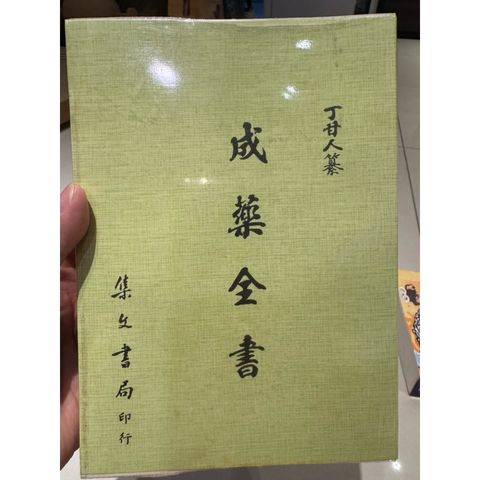 丁甘人纂
成藥全書
集文書局印行